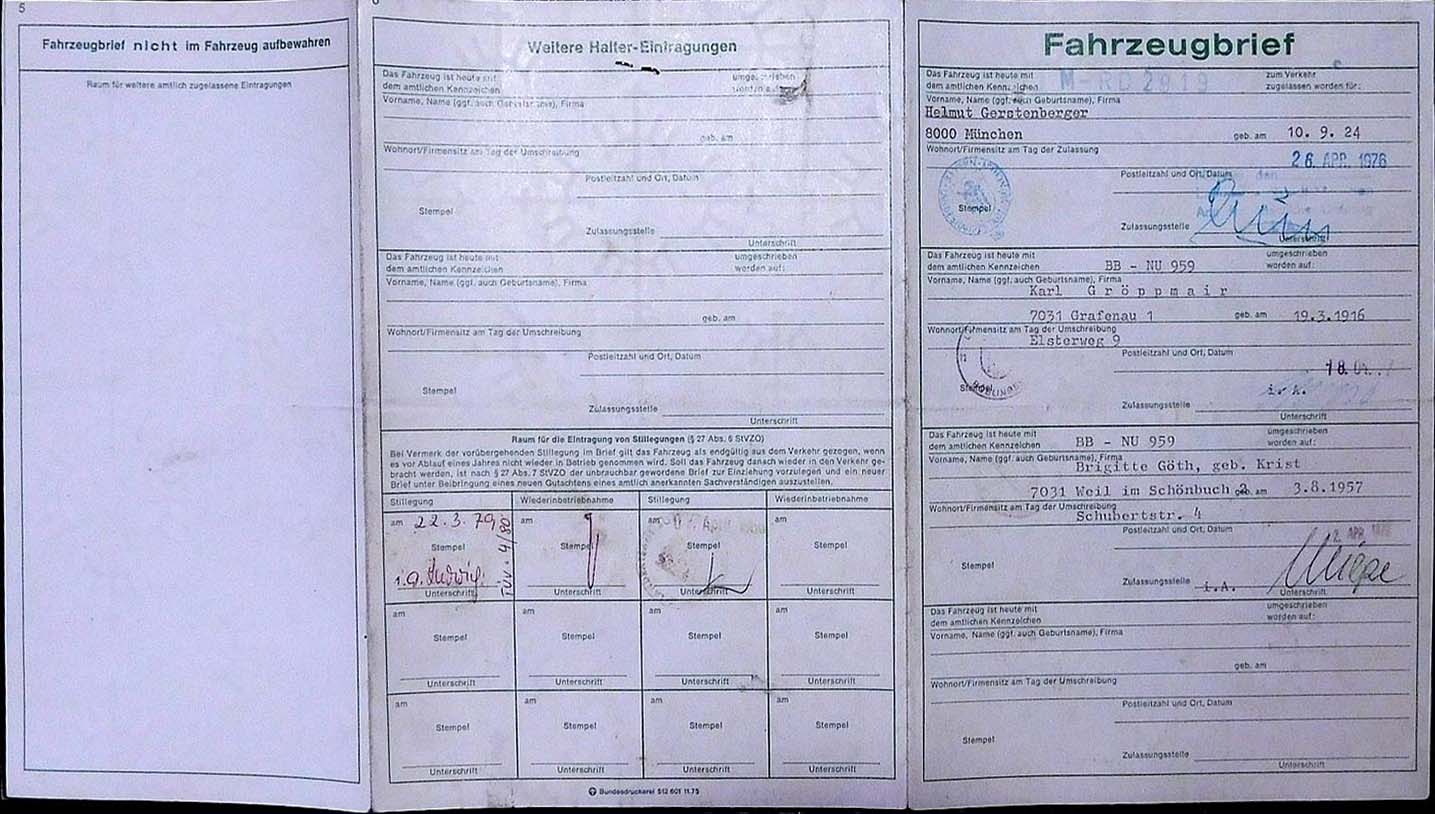 5
Fahrzeugbrief nicht im Fahrzeug aufbewahren
Raum für weitere amtlich zugelassene Eintragungen
6
Weitere Halter-Eintragungen
Das Fahrzeug ist heute mit umgeschrieben
dem amtlichen Kennzeichen worden auf:
Vorname, Name (ggf. auch Geburtsname), Firma
geb. am
Wohnort/Firmensitz am Tag der Umschreibung
Postleitzahl und Ort, Datum
Stempel
Zulassungsstelle
Unterschrift
Das Fahrzeug ist heute mit umgeschrieben
dem amtlichen Kennzeichen worden auf:
Vorname, Name (ggf. auch Geburtsname), Firma
geb. am
Wohnort/Firmensitz am Tag der Umschreibung
Postleitzahl und Ort, Datum
Stempel
Zulassungsstelle
Unterschrift
Raum für die Eintragung von Stillegungen (§ 27 Abs. 6 StVZO)
Bei Vermerk der vorübergehenden Stillegung im Brief gilt das Fahrzeug als endgültig aus dem Verkehr gezogen, wenn
es vor Ablauf eines Jahres nicht wieder in Betrieb genommen wird. Soll das Fahrzeug danach wieder in den Verkehr ge-
bracht werden, ist nach § 27 Abs. 7 StVZO der unbrauchbar gewordene Brief zur Einziehung vorzulegen und ein neuer
Brief unter Beibringung eines neuen Gutachtens eines amtlich anerkannten Sachverständigen auszustellen.
Stillegung Wiederinbetriebnahme Stillegung Wiederinbetriebnahme
am 22.3.79 am am am
TÜV. 4/80
Stempel Stempel Stempel Stempel
i.A. Ludwig
Unterschrift Unterschrift Unterschrift Unterschrift
am am am am
Stempel Stempel Stempel Stempel
Unterschrift Unterschrift Unterschrift Unterschrift
am am am am
Stempel Stempel Stempel Stempel
Unterschrift Unterschrift Unterschrift Unterschrift
Bundesdruckerei 512 601 11.75
Fahrzeugbrief
Das Fahrzeug ist heute mit M-RD 2819 zum Verkehr
dem amtlichen Kennzeichen zugelassen worden für:
Vorname, Name (ggf. auch Geburtsname), Firma
Helmut Gerstenberger
8000 München geb. am 10. 9. 24
Wohnort/Firmensitz am Tag der Zulassung
26. APR. 1976
Postleitzahl und Ort, Datum
Stempel
Zulassungsstelle
Unterschrift
Das Fahrzeug ist heute mit umgeschrieben
dem amtlichen Kennzeichen BB - NU 959 worden auf:
Vorname, Name (ggf. auch Geburtsname), Firma
Karl Gröppmair
7031 Grafenau 1 geb. am 19.3.1916
Wohnort/Firmensitz am Tag der Umschreibung
Elsterweg 9
Postleitzahl und Ort, Datum
Stempel
Zulassungsstelle
Unterschrift
Das Fahrzeug ist heute mit umgeschrieben
dem amtlichen Kennzeichen BB - NU 959 worden auf:
Vorname, Name (ggf. auch Geburtsname), Firma
Brigitte Göth, geb. Krist
7031 Weil im Schönbuch 2 geb. am 3.8.1957
Wohnort/Firmensitz am Tag der Umschreibung
Schubertstr. 4
Postleitzahl und Ort, Datum
Stempel
Zulassungsstelle i.A.
Unterschrift
Das Fahrzeug ist heute mit umgeschrieben
dem amtlichen Kennzeichen worden auf:
Vorname, Name (ggf. auch Geburtsname), Firma
geb. am
Wohnort/Firmensitz am Tag der Umschreibung
Postleitzahl und Ort, Datum
Stempel
Zulassungsstelle
Unterschrift